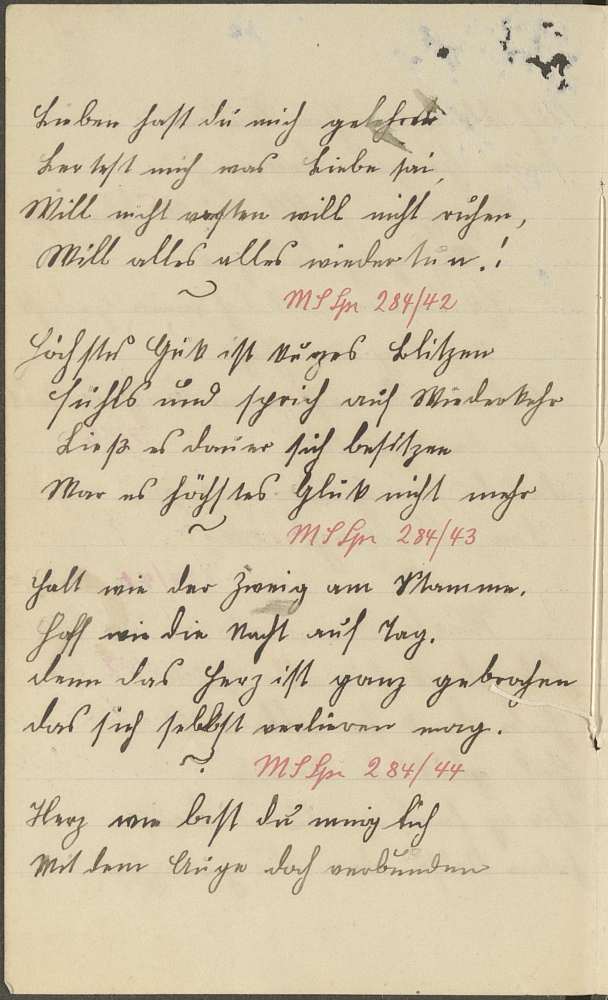 Lieben hast du mich gelehret
Lertest mich was Liebe sei,
Will nicht rasten will nicht ruhen,
Will alles alles wieder tun.!
MS Lpr 284/42
Höchstes Glük ist Auges Blitzen
fühls und sprich auf Wiederkehr
Ließ es dauer sich besitzen
War es höchstes Glük nicht mehr
MS Lpr 284/43
Halt wie der Zweig am Stamme.
Hoff wie die Nacht auf Tag.
denn das Herz ist ganz gebrochen
das sich selbst verlieren mag.
MS Lpr 284/44
Herz wie bist du innig lich
Mit dem Auge doch verbunden